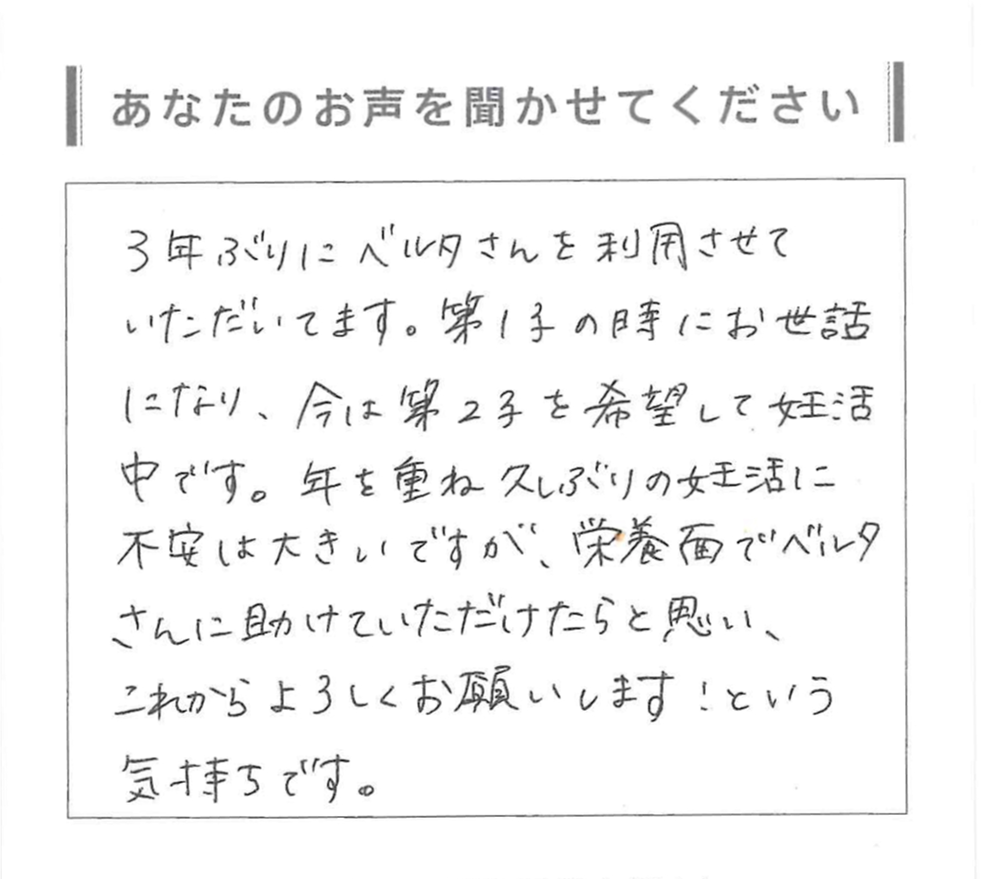 あなたのお声を聞かせてください
3年ぶりにベルタさんを利用させて
いただいてます。第1子の時にお世話
になり、今は第2子を希望して妊活
中です。年を重ね久しぶりの妊活に
不安は大きいですが、栄養面でベルタ
さんに助けていただけたらと思い、
これからよろしくお願いします!という
気持ちです。